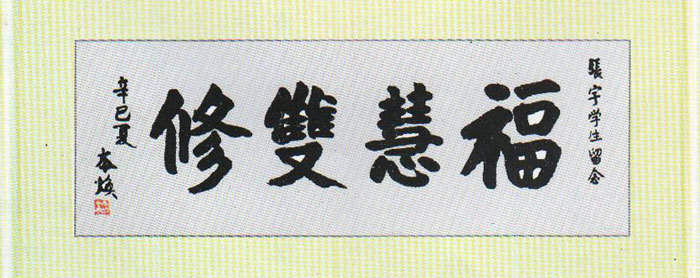 張宇学生留念
福慧雙修
辛巳夏
本煥